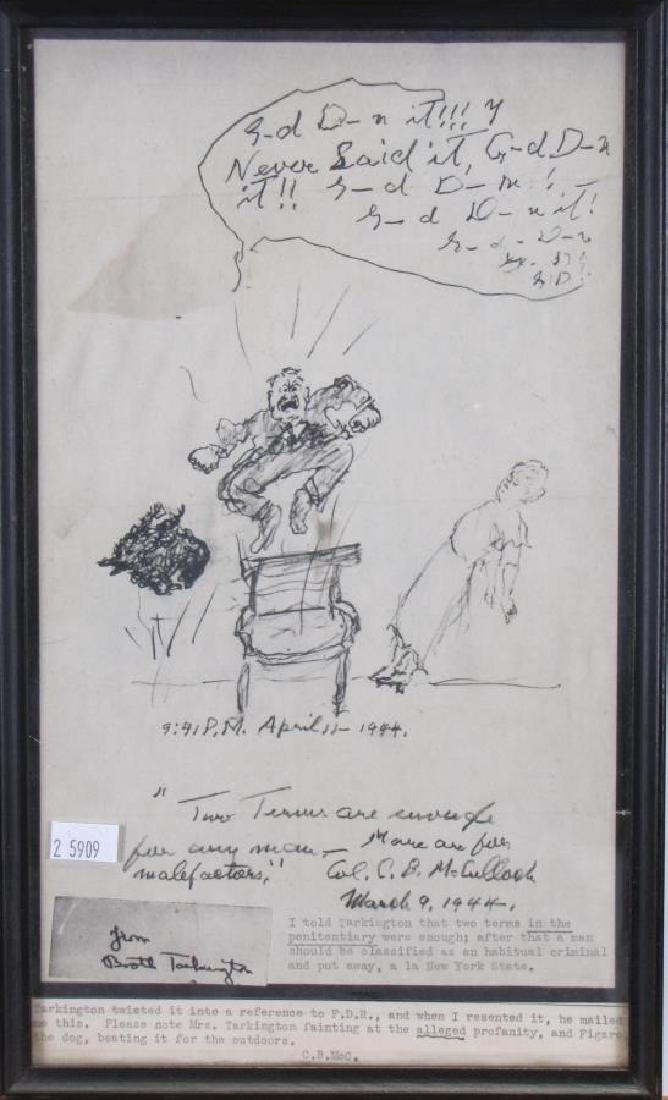 G-d D-n it!!! I
Never Said it, G-d D-n
it!! G-d D-m!
G-d D-n it!
G-d-D-n
G D!!
9:41 P.M. April 11- 1944.
"Two Terms are enough
for any man,— More are for
malefactors." Col. C. B. McCulloch
March 9, 1944.
2 5909
from
Booth Tarkington
I told Tarkington that two terms in the
penitentiary were enough; after that a man
should be classified as an habitual criminal
and put away, a la New York State.
Tarkington twisted it into a reference to F.D.R., and when I resented it, he mailed
me this. Please note Mrs. Tarkington fainting at the alleged profanity, and Figaro,
the dog, beating it for the outdoors.
C.B.McC.